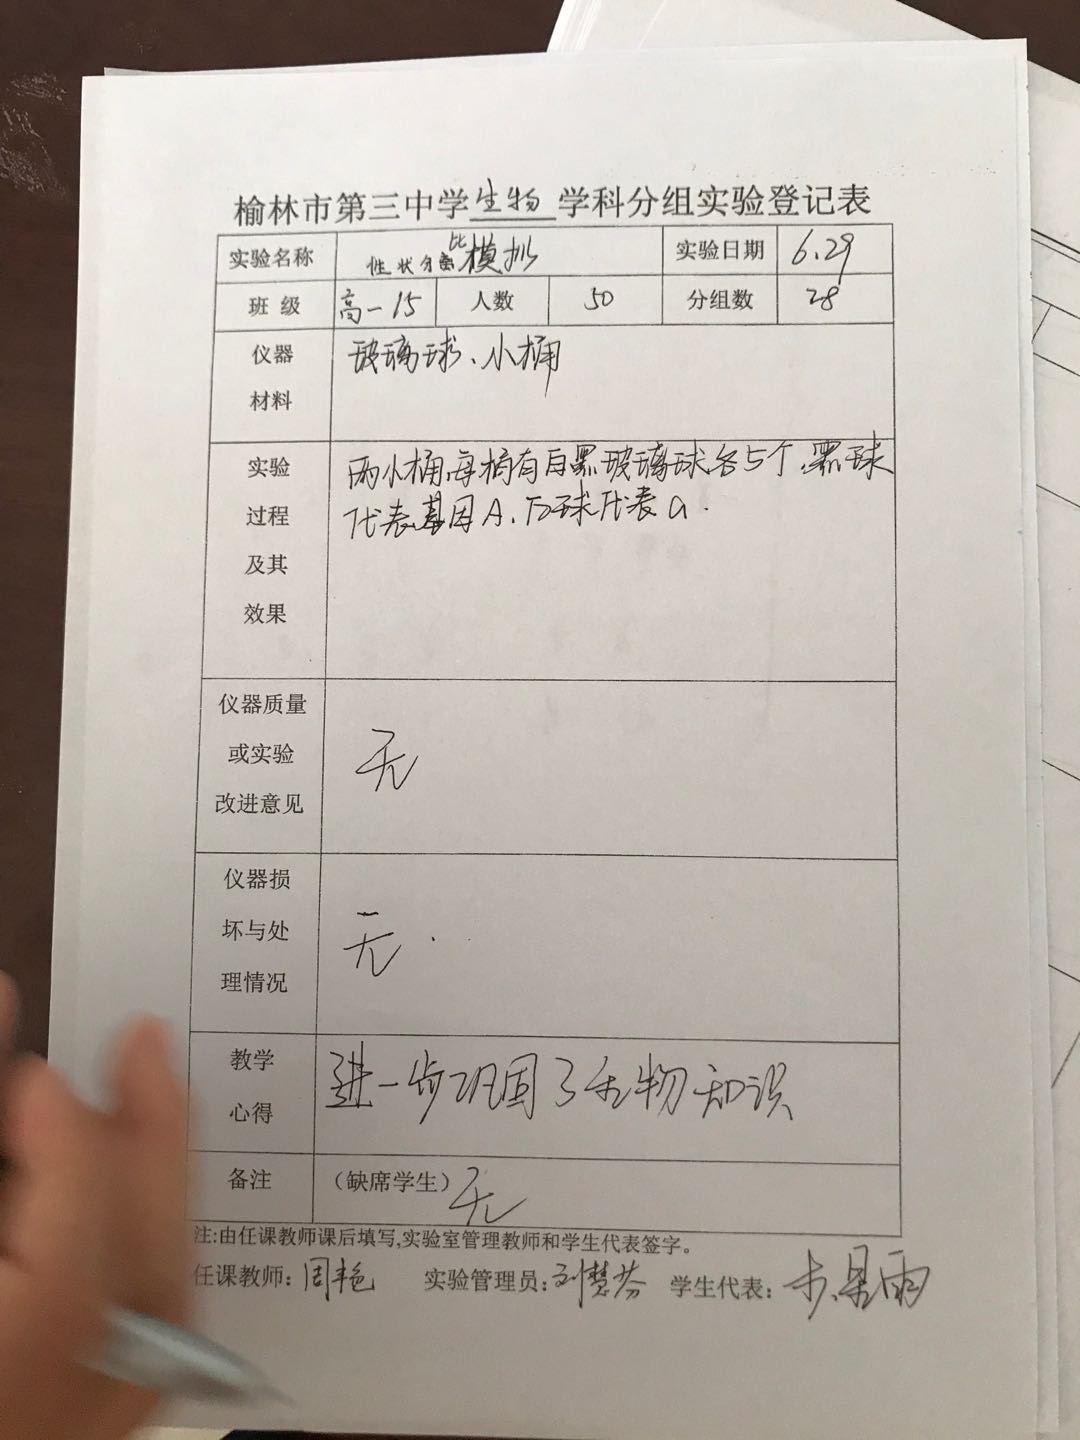 榆林市第三中学生物学科分组实验登记表
实验名称 性状分离比模拟 实验日期 6.29
班级 高一15 人数 50 分组数 28
仪器材料 玻璃球、小桶
实验过程及其效果 两小桶,每桶有白黑玻璃球各5个,黑球
代表基因A、白球代表a.
仪器质量或实验改进意见 无
仪器损坏与处理情况 无.
教学心得 进一步巩固了生物知识
备注 (缺席学生)无
注:由任课教师课后填写,实验室管理教师和学生代表签字。
任课教师:周艳 实验管理员:刘慧芬 学生代表: